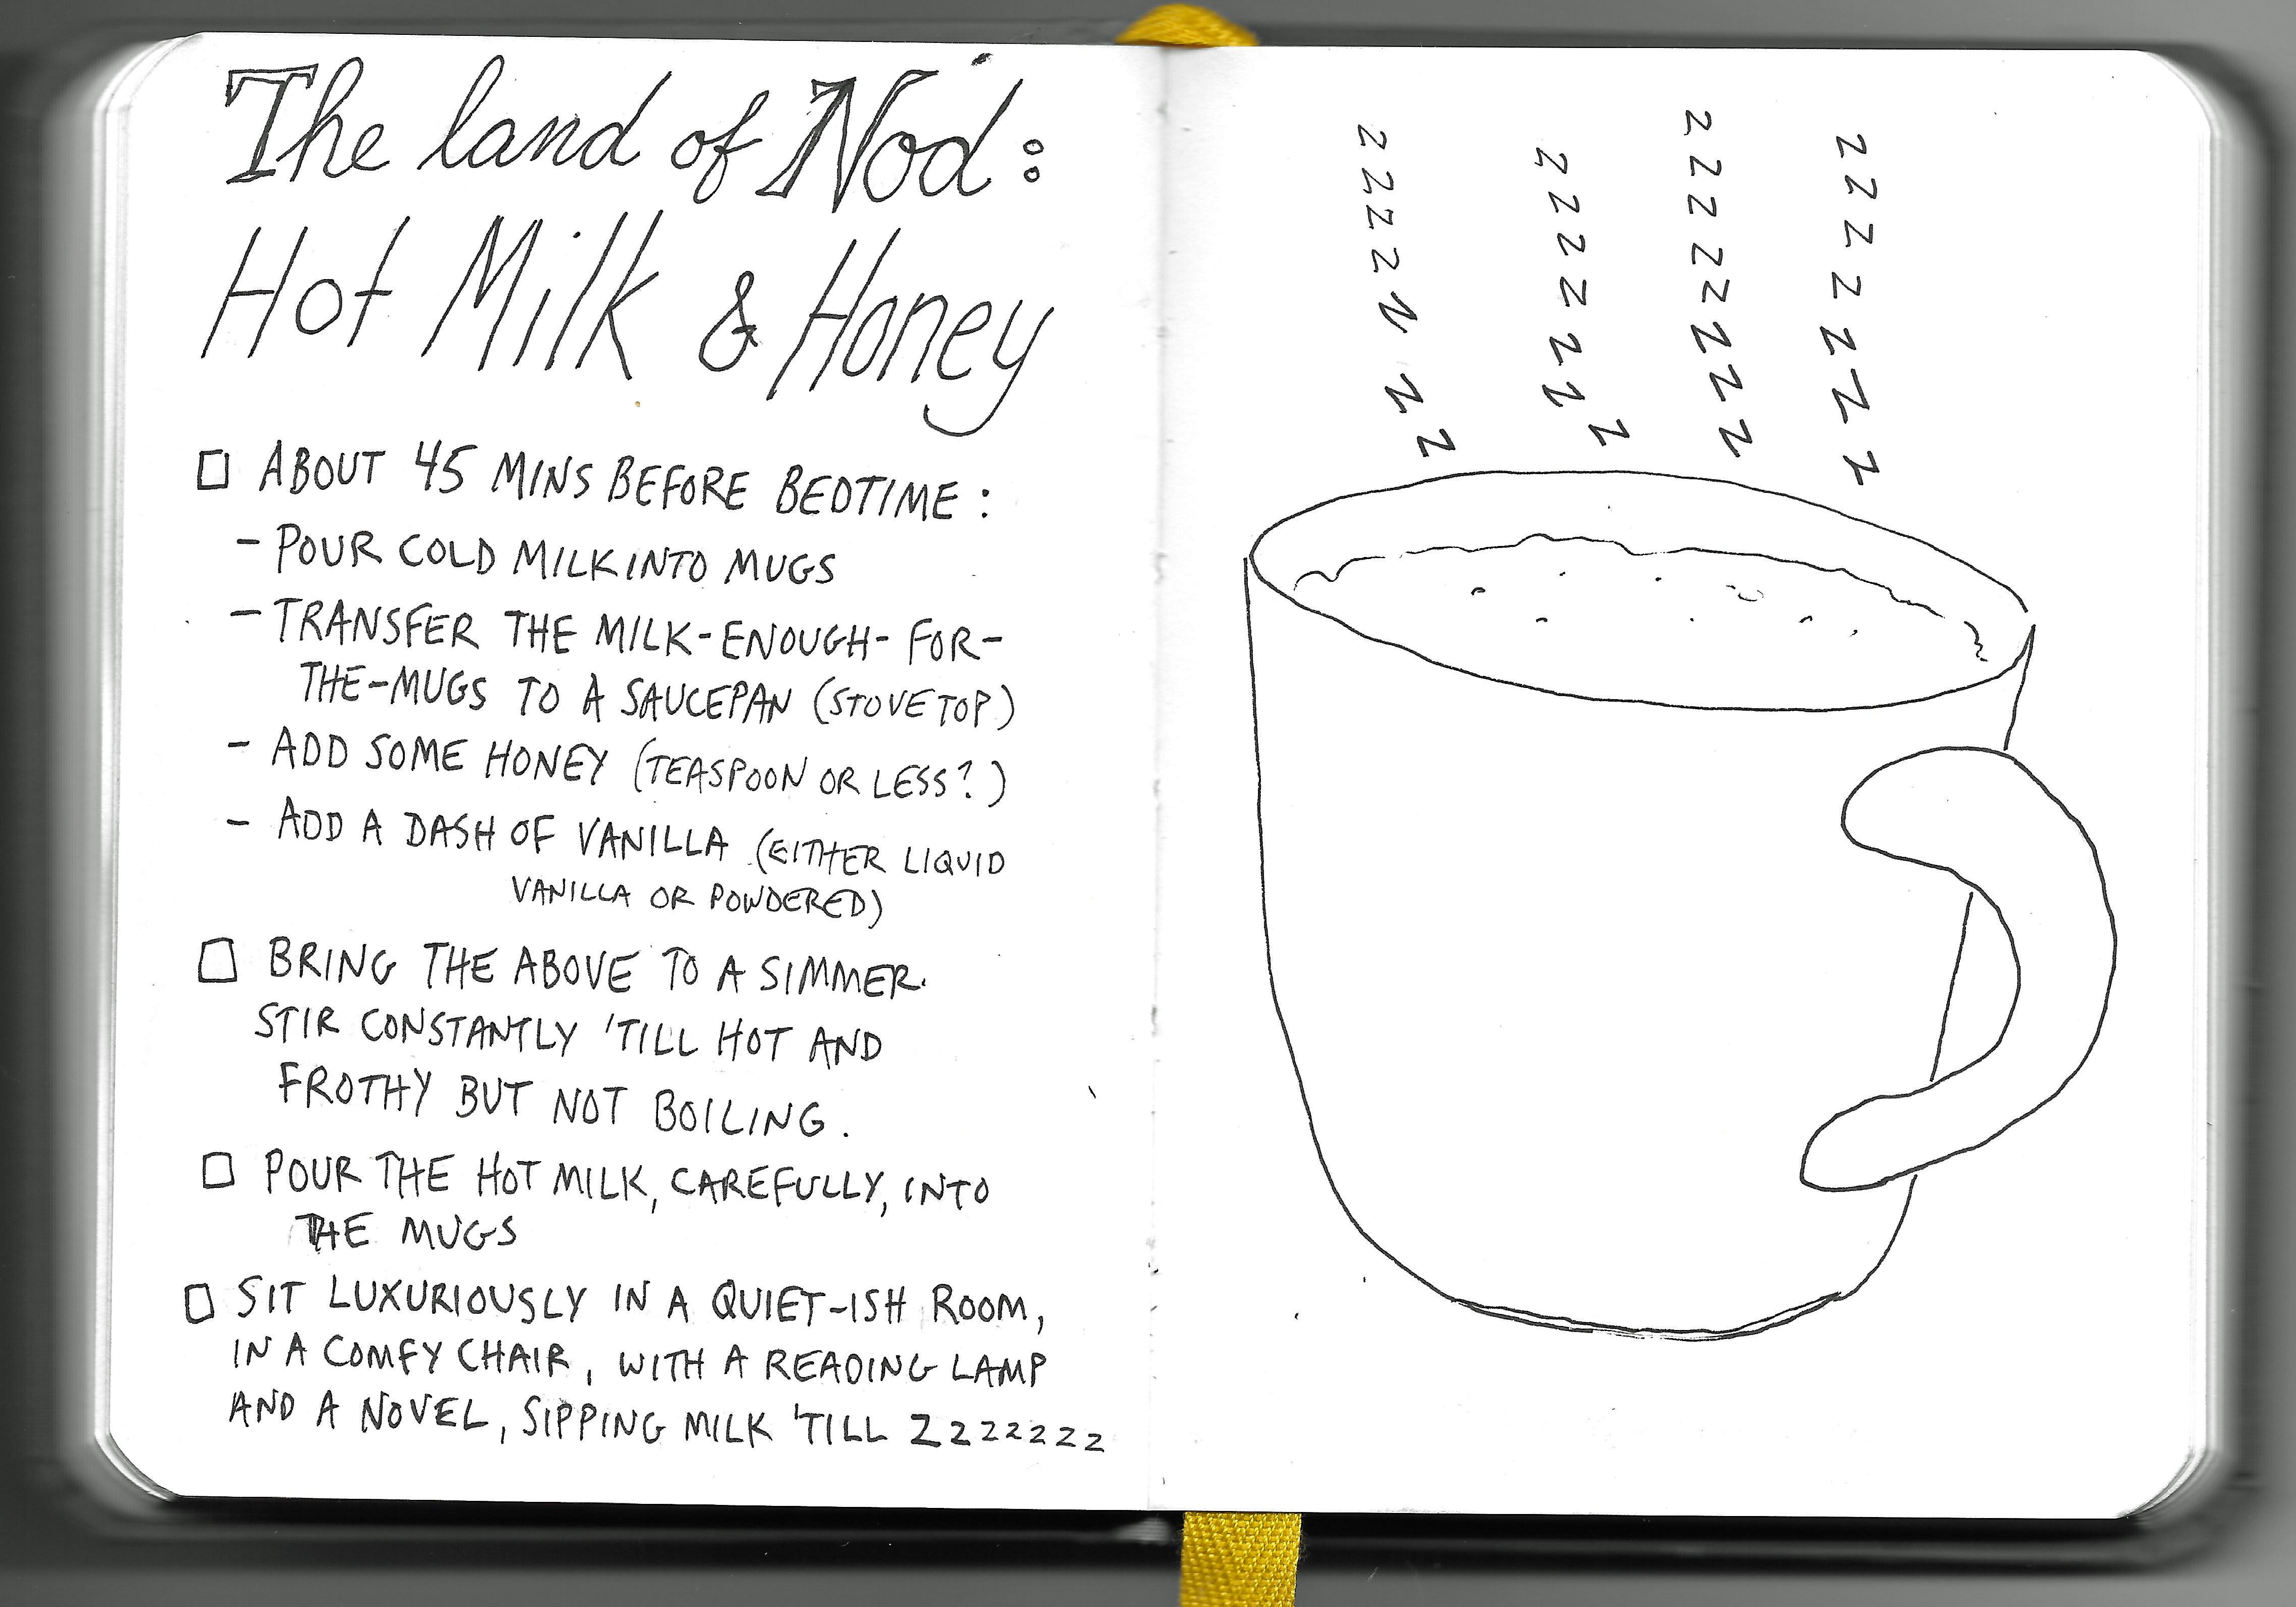 The land of Nod:
Hot Milk & Honey
ABOUT 45 MINS BEFORE BEDTIME:
- POUR COLD MILK INTO MUGS
- TRANSFER THE MILK-ENOUGH-FOR-
THE-MUGS TO A SAUCEPAN (STOVETOP)
- ADD SOME HONEY (TEASPOON OR LESS?)
- ADD A DASH OF VANILLA (EITHER LIQUID
VANILLA OR POWDERED)
BRING THE ABOVE TO A SIMMER.
STIR CONSTANTLY 'TILL HOT AND
FROTHY BUT NOT BOILING.
POUR THE HOT MILK, CAREFULLY, INTO
THE MUGS
SIT LUXURIOUSLY IN A QUIET-ISH ROOM,
IN A COMFY CHAIR, WITH A READING LAMP
AND A NOVEL, SIPPING MILK 'TILL Zzzzzzzz
z z z z z z z
z z z z z z z
z z z z z z z z
z z z z z z z